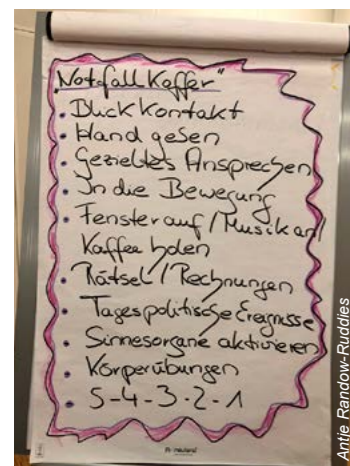 „Notfall Koffer"
• Blick Kontakt
• Hand geben
• Gezieltes Ansprechen
• In die Bewegung
• Fenster auf / Musik an/
Kaffee holen
• Rätsel / Rechnungen
• Tagespolitische Ereignisse
• Sinnesorgane aktivieren
• Körperübungen
• 5-4-3-2-1
neuland
Antje Randow-Ruddies